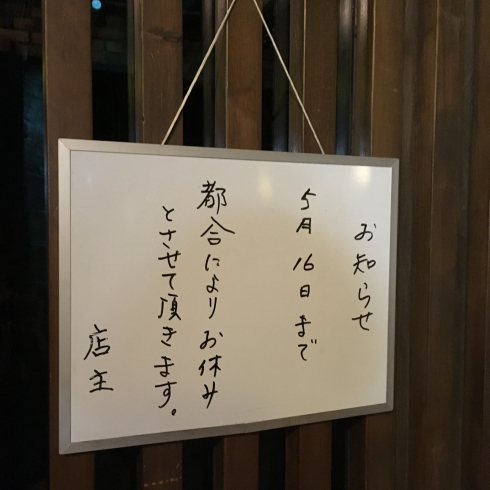 お知らせ
5月16日まで
都合によりお休み
とさせて頂きます。
店主